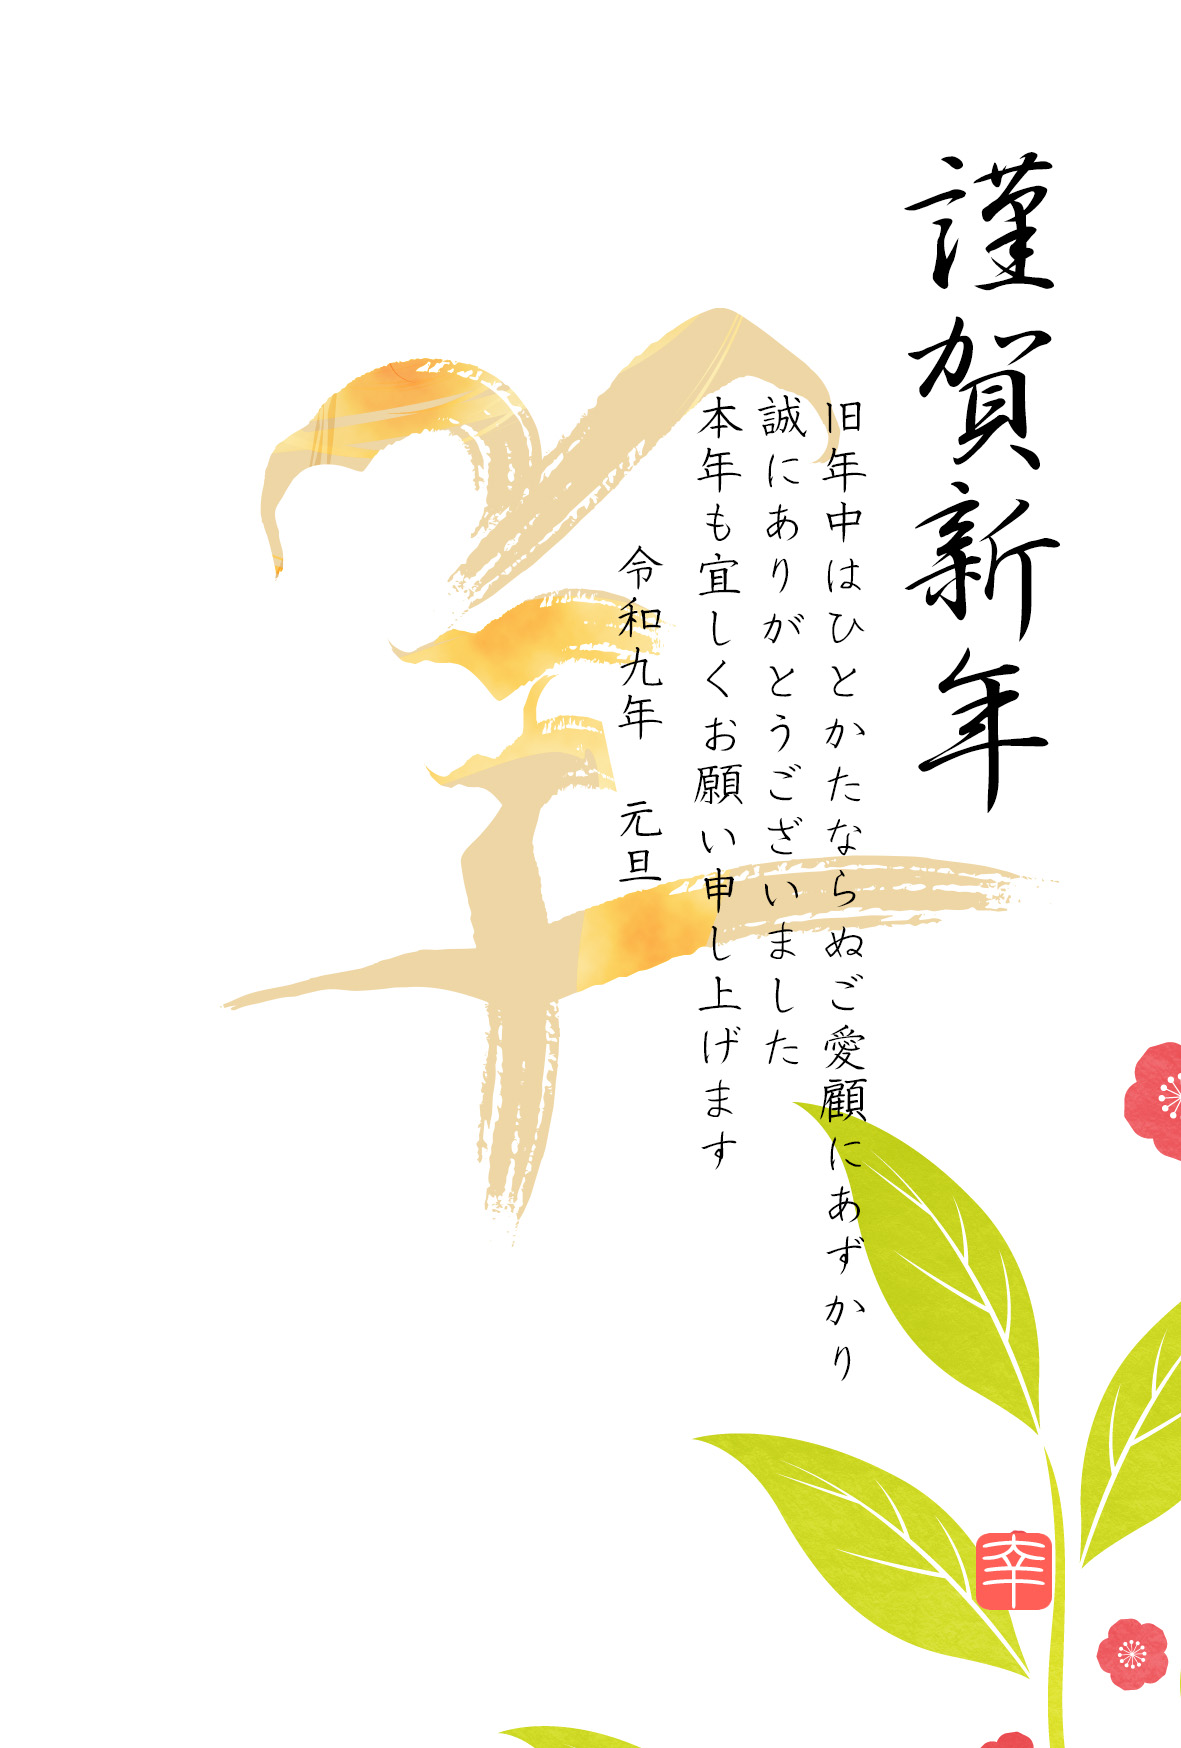 謹賀新年
旧年中はひとかたならぬご愛顧にあずかり
誠にありがとうございました
本年も宜しくお願い申し上げます
令和九年 元旦
羊
幸